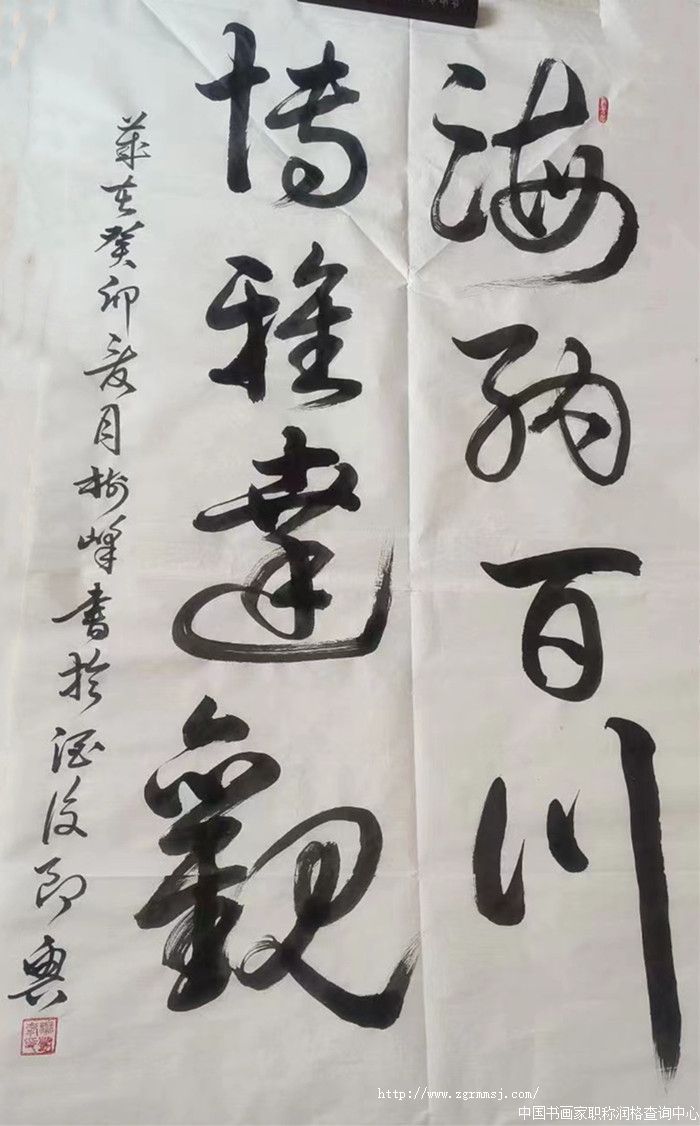 海纳百川
博雅達觀
歲在癸卯夏月樹峰書於酒後即興
http://www.zgrmmsj.com/
中国书画家职称润格查询中心